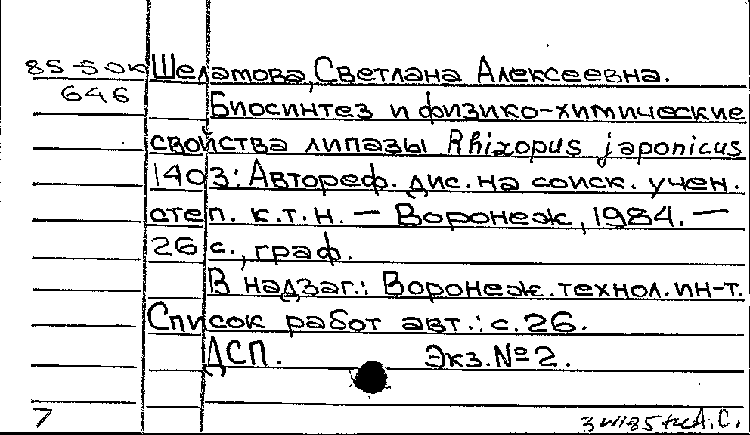 85-50к Шеламова, Светлана Алексеевна.
646 Биосинтез и физико-химические
свойства липазы Rhizopus japonicus
1403: Автореф. дис. на соиск. учен.
степ. к.т.н. — Воронеж, 1984. —
26 с., граф.
В надзаг.: Воронеж. технол. ин-т.
Список работ авт.: с. 26.
ДСП. Экз. №2.
7